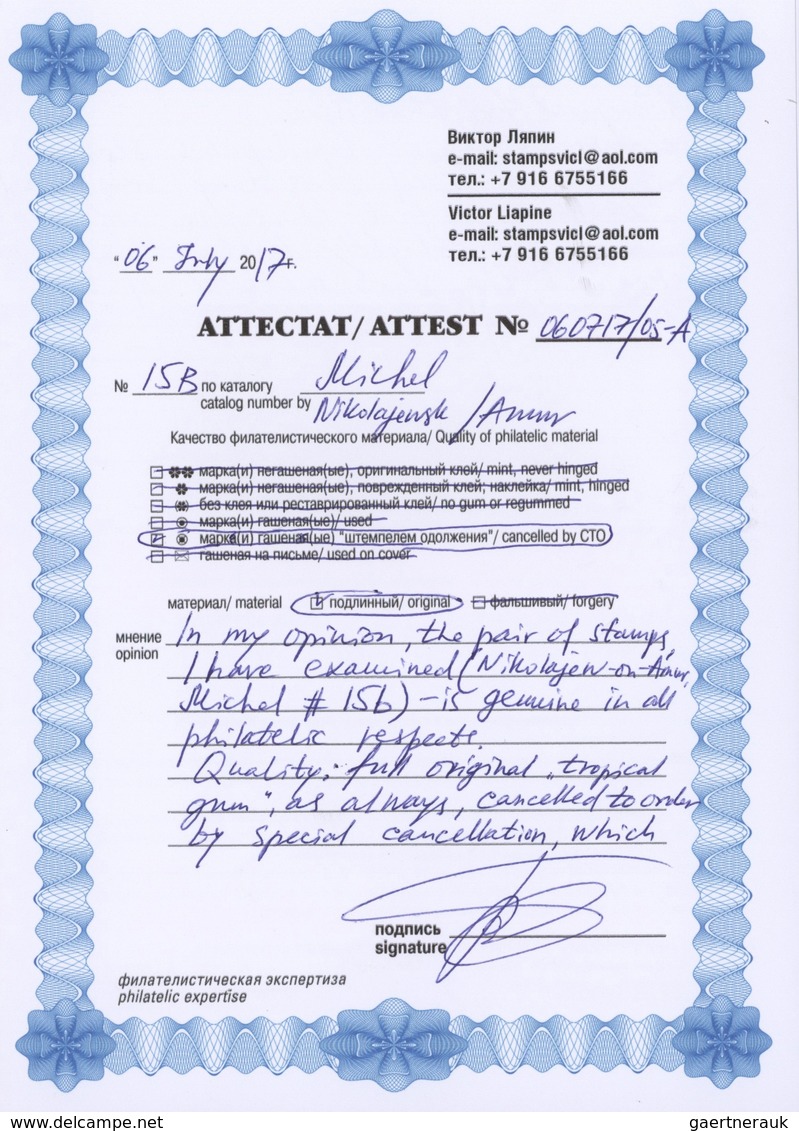 Виктор Ляпин
e-mail: stampsvicl@aol.com
тел.: +7 916 6755166
Victor Liapine
e-mail: stampsvicl@aol.com
тел.: +7 916 6755166
"06" July 2017г.
АТТЕСТАТ/ ATTEST № 060717/05-A
№ 15B по каталогу Michel
catalog number by Nikolajewsk /Amur
Качество филателистического материала/ Quality of philatelic material
марка(и) негашеная(ые), оригинальный клей/ mint, never hinged
марка(и) негашеная(ые), поврежденный клей; наклейка/ mint, hinged
без клея или реставрированный клей/ no gum or regummed
марка(и) гашеная(ые)/ used
марка(и) гашеная(ые) "штемпелем одолжения"/ cancelled by CTO
гашеная на письме/ used on cover
материал/ material подлинный/ original фальшивый/ forgery
мнение
opinion
In my opinion, the pair of stamps,
I have examined (Nikolajew-on-Amur,
Michel # 15b) - is genuine in all
philatelic respects.
Quality: full original „tropical
gum", as always, cancelled to order
by special cancellation, which
подпись
signature
филателистическая экспертиза
philatelic expertise
www.delcampe.net
gaertnerauk